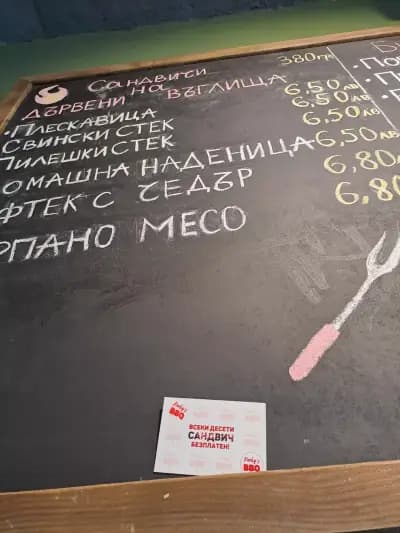 Сандвичи 380гр
на
ДЪРВЕНИ ВЪГЛИЩА
•ПЛЕСКАВИЦА 6,50лв
СВИНСКИ СТЕК 6,50лв
ПИЛЕШКИ СТЕК 6,50
ОМАШНА НАДЕНИЦА 6,50лв
ФТЕК С ЧЕДЪР 6,80
РПАНО МЕСО 6,80
BBQ
ВСЕКИ ДЕСЕТИ
САНДВИЧ
БЕЗПЛАТЕН!
BBQ